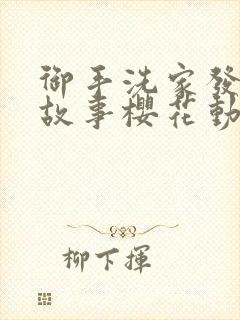 御手洗家發
故事櫻花動
柳下揮